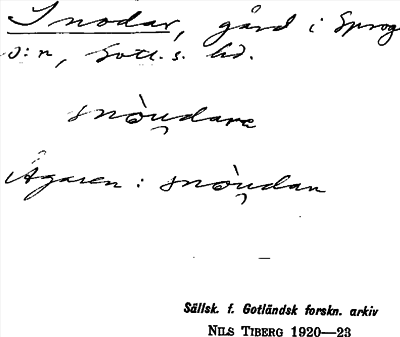 Snodar, gård i Sprog
s:n, Gotl. s. hd.
snòu̯dara
Ägaren : snòu̯dan
Sällsk. f. Gotländsk forskn. arkiv
NILS TIBERG 1920—23